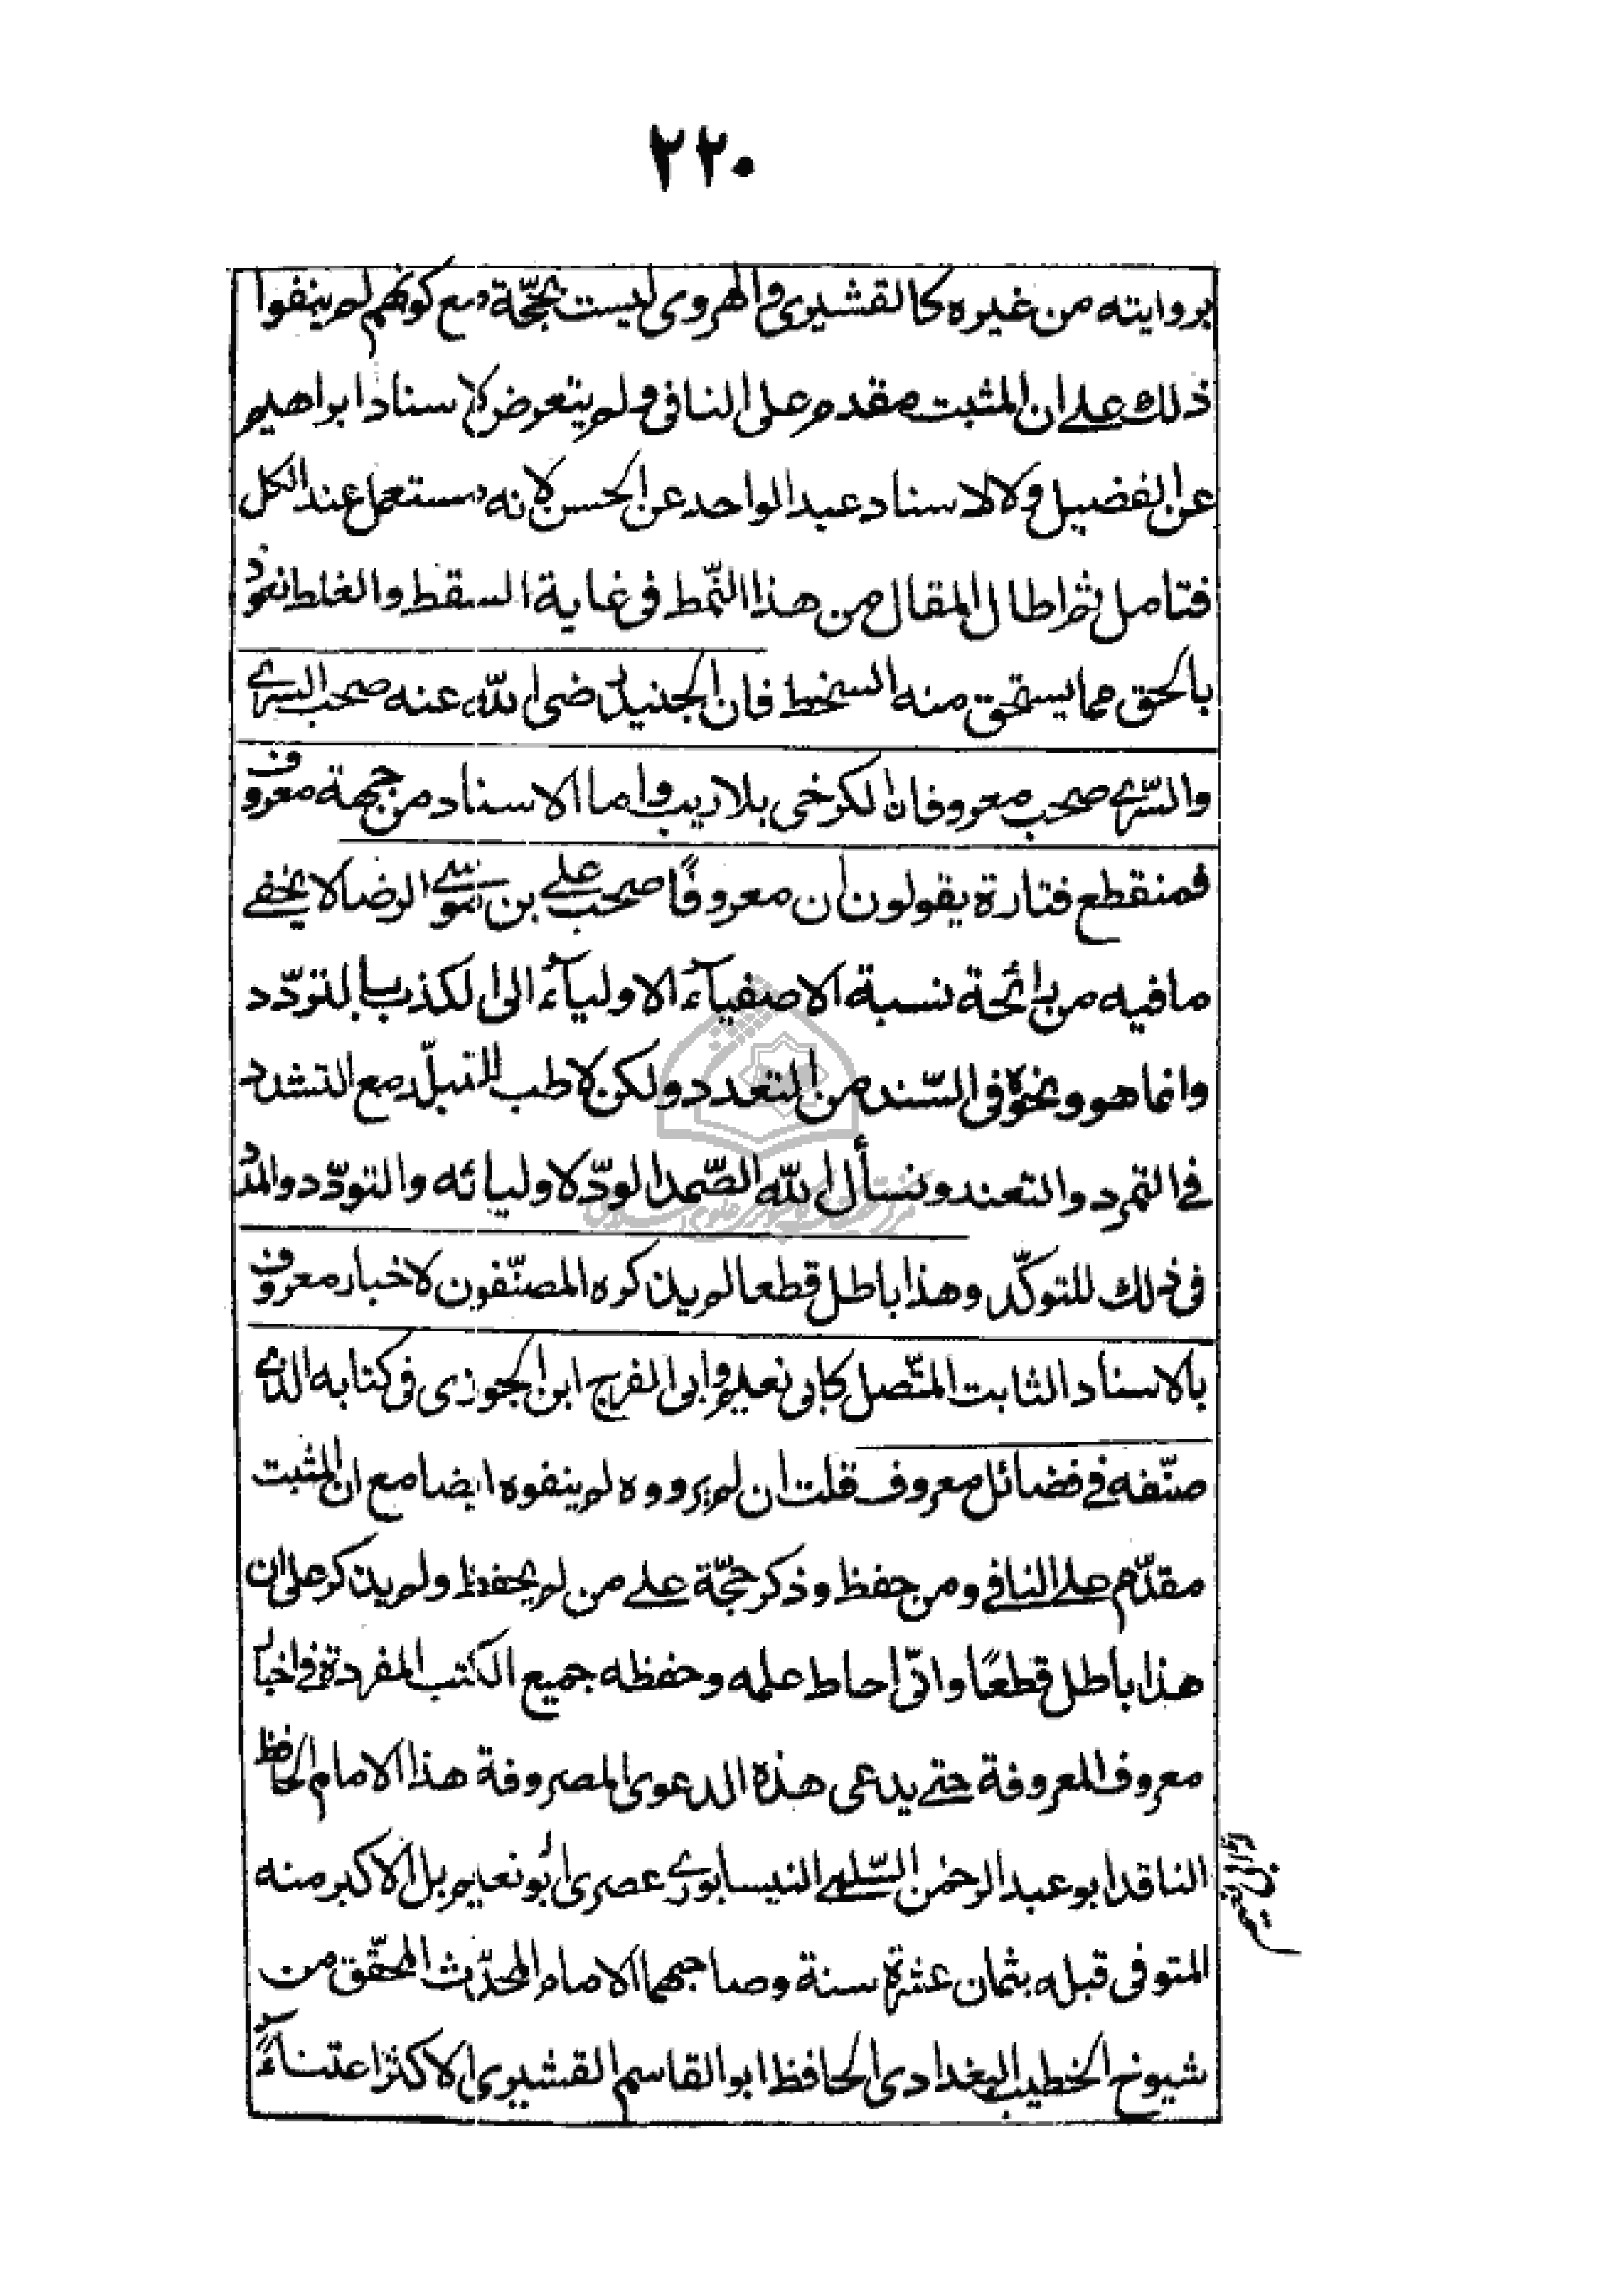 ٢٢٠
بروايته من غيره كالقشيرى والهروى ليست بحجّة مع كونهم لم ينفوا
ذلك على ان المثبت مقدم على النافى ولم يتعرض لاسناد ابراهيم
عن الفضيل ولا لاسناد عبد الواحد عن الحسن لانه مستعمل عند الكل
فتامل ثم اطال المقال من هذا النّمط فى غاية السقط والغلط نعوذ
بالحق مما يستحق منه السخط فان الجنيد رضى الله عنه صحب السرى
والسّرى صحب معروفان الكرخى بلا ريب واما الاسناد من جهة معروف
فمنقطع فتارة يقولون ان معروفًا صحب على بن موسى الرضا لا يخفى
ما فيه من رائحة نسبة الاصفيآء الاوليآء الى الكذب بالتودّد
وانما هو ونحوه فى السّند من التعدد ولكن لا طب للتبلّد مع التشدد
فى التمرد والتعند ونسأل الله الصّمد الودّ لاوليائه والتودّد والمدد
فى ذلك للتوكّد وهذا باطل قطعا لم يذكره المصنّفون لاخبار معروف
بالاسناد الثابت المتّصل كابى نعيم وابى الفرج ابن الجوزى فى كتابه الذى
صنّفه فى فضائل معروف قلت ان لم يرووه لم ينفوه ايضا مع ان المثبت
مقدّم على النافى ومن حفظ وذكر حجّة على من لم يحفظ ولم يذكر على ان
هذا باطل قطعًا وانّى احاط علمه وحفظه جميع الكتب المفردة فى اخبار
معروف المعروفة حتى يدعى هذه الدعوى المصروفة هذا الامام الحافظ
الناقد ابو عبد الرحمن السّلمى النيسابورى عصرى أبو نعيم بل الاكبر منه
المتوفى قبله بثمان عشرة سنة وصاحبهما الامام المحدّث المحقّق من
شيوخ الخطيب البغدادى الحافظ ابو القاسم القشيرى الاكثر اعتناءً